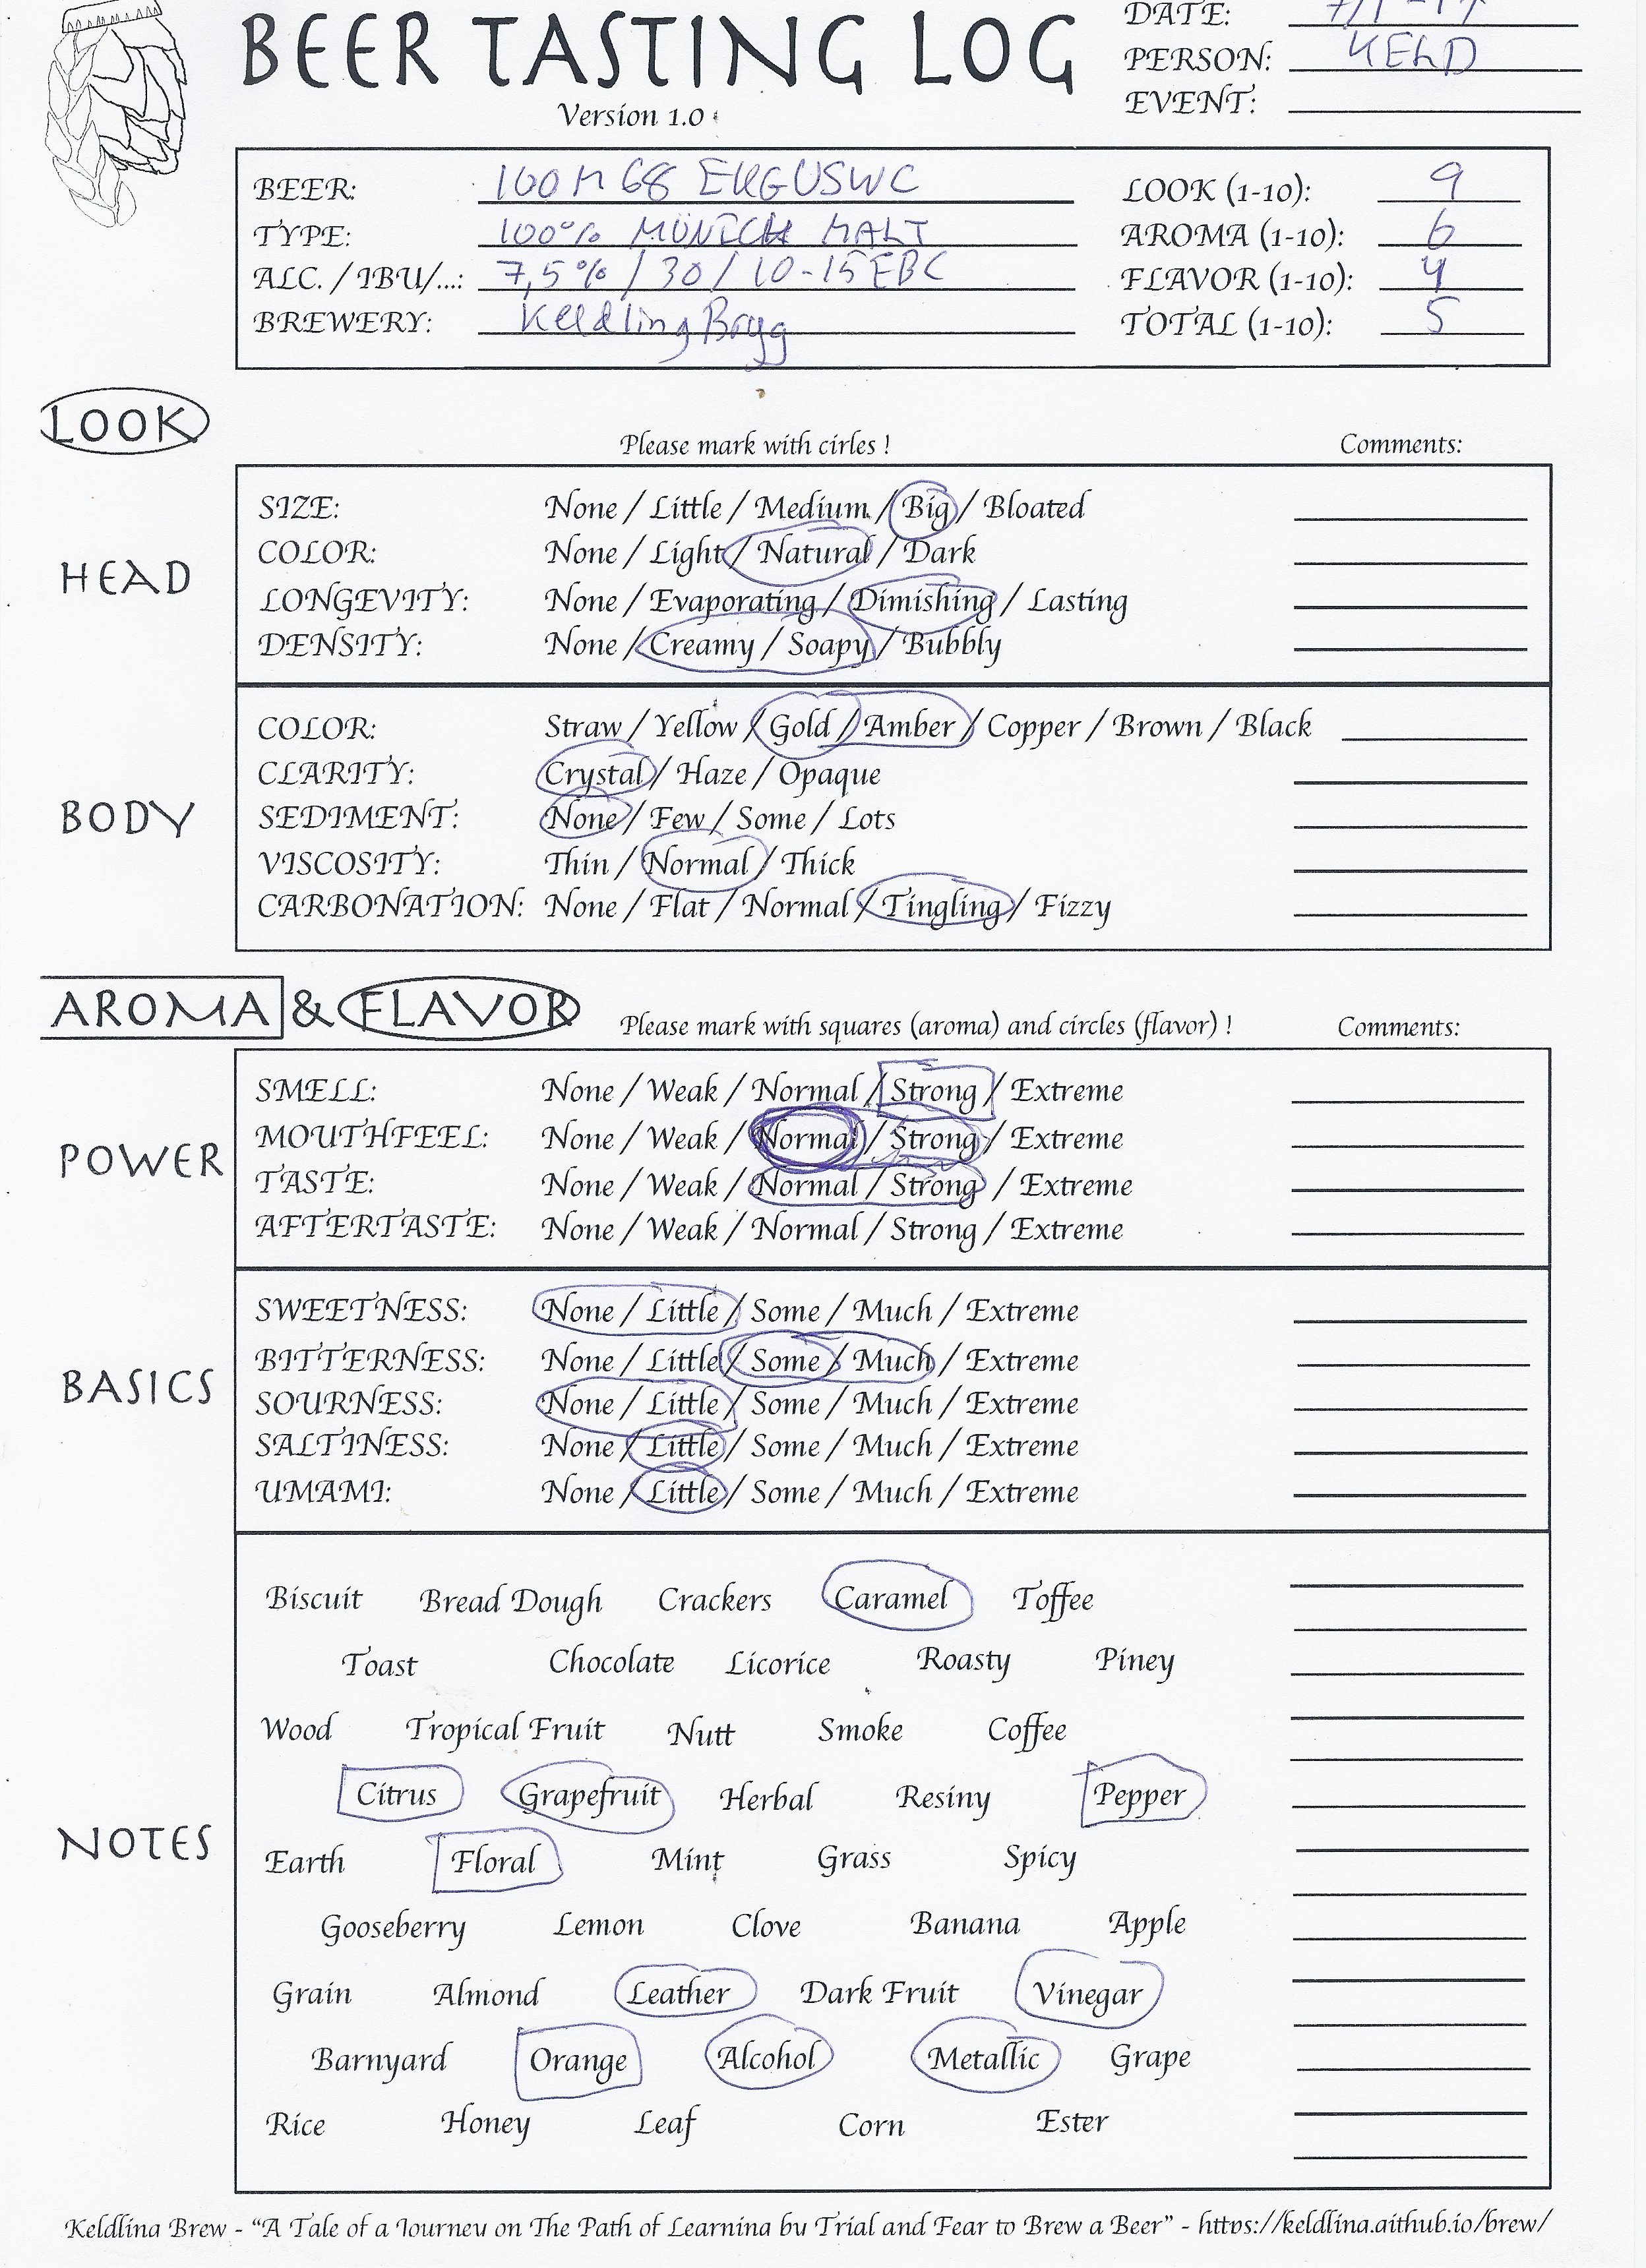 BEER TASTING LOG
Version 1.0
DATE:
PERSON: KELD
EVENT:
BEER: 100M68 EKGUSWC
TYPE: 100% MÜNICH MALT
ALC. / IBU/...: 7,5% / 30 / 10-15 EBC
BREWERY: Keldling Brygg
LOOK (1-10): 9
AROMA (1-10): 6
FLAVOR (1-10): 4
TOTAL (1-10): 5
LOOK
Please mark with cirles !
Comments:
HEAD
SIZE: None / Little / Medium / Big / Bloated
COLOR: None / Light / Natural / Dark
LONGEVITY: None / Evaporating / Dimishing / Lasting
DENSITY: None / Creamy / Soapy / Bubbly
BODY
COLOR: Straw / Yellow / Gold / Amber / Copper / Brown / Black
CLARITY: Crystal / Haze / Opaque
SEDIMENT: None / Few / Some / Lots
VISCOSITY: Thin / Normal / Thick
CARBONATION: None / Flat / Normal / Tingling / Fizzy
AROMA & FLAVOR
Please mark with squares (aroma) and circles (flavor) !
Comments:
POWER
SMELL: None / Weak / Normal / Strong / Extreme
MOUTHFEEL: None / Weak / Normal / Strong / Extreme
TASTE: None / Weak / Normal / Strong / Extreme
AFTERTASTE: None / Weak / Normal / Strong / Extreme
BASICS
SWEETNESS: None / Little / Some / Much / Extreme
BITTERNESS: None / Little / Some / Much / Extreme
SOURNESS: None / Little / Some / Much / Extreme
SALTINESS: None / Little / Some / Much / Extreme
UMAMI: None / Little / Some / Much / Extreme
NOTES
Biscuit Bread Dough Crackers Caramel Toffee
Toast Chocolate Licorice Roasty Piney
Wood Tropical Fruit Nutt Smoke Coffee
Citrus Grapefruit Herbal Resiny Pepper
Earth Floral Mint Grass Spicy
Gooseberry Lemon Clove Banana Apple
Grain Almond Leather Dark Fruit Vinegar
Barnyard Orange Alcohol Metallic Grape
Rice Honey Leaf Corn Ester
Keldling Brew - "A Tale of a Journey on The Path of Learning by Trial and Fear to Brew a Beer" - https://keldling.github.io/brew/